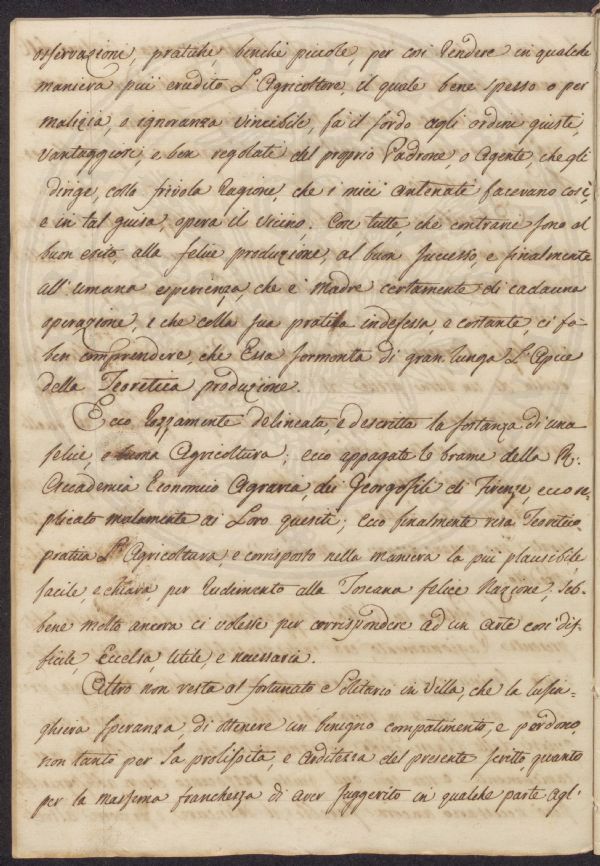 osservazioni, pratiche, benchè piccole, per così rendere in qualche
maniera più erudito L'Agricoltore, il quale bene spesso o per
malizia, o ignoranza vincibile, fa il sordo agli ordini giusti,
vantaggiosi, e ben regolati del proprio Padrone, o Agente, che gli
dirige, colla frivola ragione, che i miei antenati facevano così,
e in tal guisa, opera il vicino. Cose tutte, che contrarie sono al
buon esito, alla felice produzione, al buon successo, e finalmente
all'umana esperienza, che è Madre certamente di cadauna
operazione, e che colla sua pratica indefessa, e costante, ci fà
ben comprendere, che Essa sormonta di gran lunga L'Apice
della Teoretica produzione.
Ecco rozzamente delineata, e descritta la sostanza di una
felice, e buona Agricoltura; ecco appagate le brame della R.
Accademia Economico Agraria, dei Georgofili di Firenze, ecco re-
plicato malamente ai Loro quesiti; Ecco finalmente resa Teorico
pratica L'Agricoltura, e corrisposto nella maniera la più plausibile,
facile, e chiara, per rudimento alla Toscana felice Nazione; Seb-
bene molto ancora ci volesse per corrispondere ad un arte così dif-
ficile, Eccelsa, Utile, e necessaria.
Altro non resta al fortunato e Solitario in Villa, che la lusin-
ghiera speranza, di ottenere un benigno compatimento, e perdono,
non tanto per la prolissità, e arditezza del presente scritto, quanto
per la massima franchezza di aver suggerito in qualche parte agl'